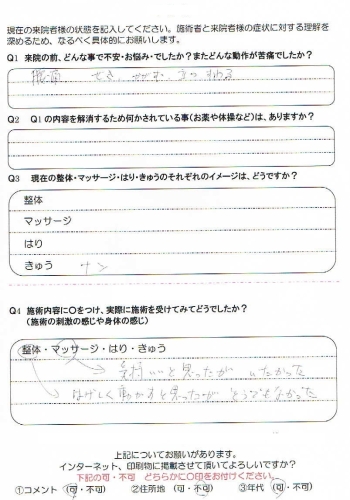 現在の来院者様の状態を記入してください。施術者と来院者様の症状に対する理解を
深めるため、なるべく具体的にお願いします。
Q1 来院の前、どんな事で不安・お悩み・でしたか？またどんな動作が苦痛でしたか？
腰痛 せき かがむ 立つ すわる
Q2 Q1の内容を解消するため何かされている事（お薬や体操など）は、ありますか？
Q3 現在の整体・マッサージ・はり・きゅうのそれぞれのイメージは、どうですか？
整体
マッサージ
はり
きゅう
Q4 施術内容に○をつけ、実際に施術を受けてみてどうでしたか？
（施術の刺激の感じや身体の感じ）
整体・マッサージ・はり・きゅう
気持いいと思ったが いたかった
はげしく動かすと思ったが そうでもなかった
上記についてお願いがあります。
インターネット、印刷物に掲載させて頂いてよろしいですか？
下記の可・不可 どちらかに○印をお付けください。
①コメント （可・不可） ②住所地 （可・不可） ③年代 （可・不可）